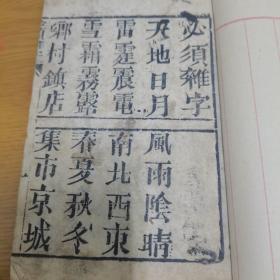 必須雜字
天地日月 風雨陰晴
雷霆震電 南北西東
雪霜霧露 春夏秋冬
鄉村鎮店 集市京城